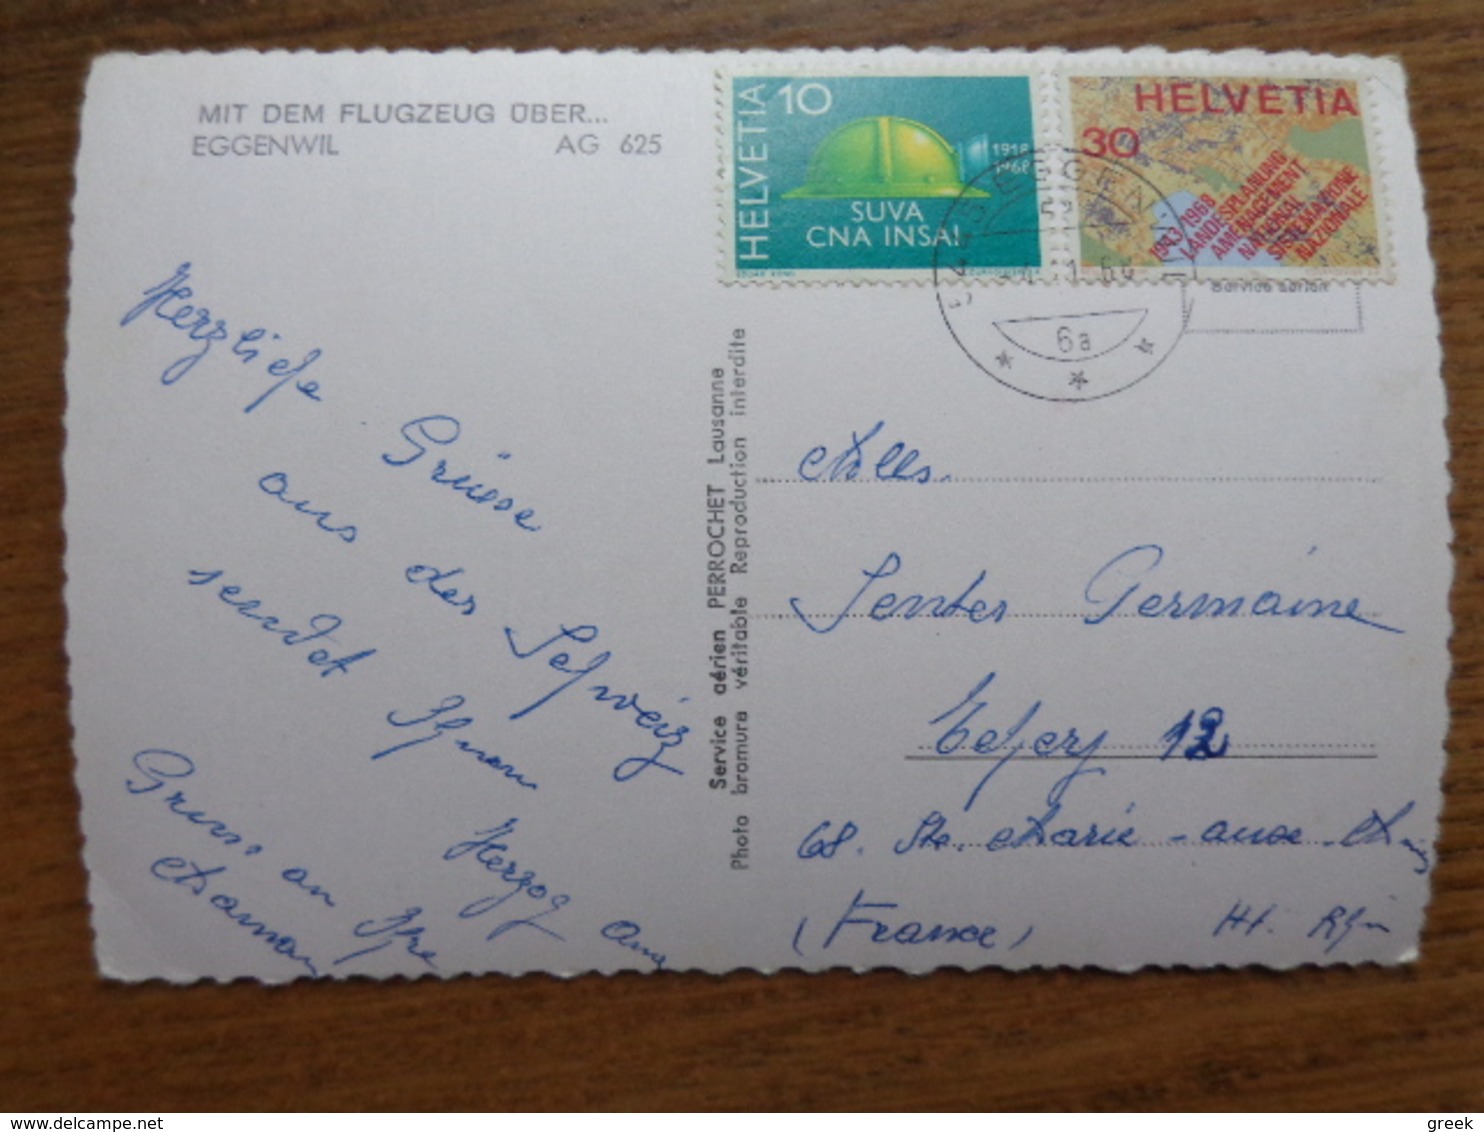 MIT DEM FLUGZEUG ÜBER...
EGGENWIL AG 625
HELVETIA
10
1918
1968
SUVA
CNA INSAI
HELVETIA
30
1943-1968
LANDESPLANUNG
AMENAGEMENT
NATIONAL
SISTEMAZIONE
NAZIONALE
EGGENWIL
6a
Herzliche
Grüsse
aus der Schweiz
sendet Ihnen Herzog
Gruss an Ihre
Maman
Service aérien PERROCHET Lausanne
Photo bromure véritable Reproduction interdite
Melles.
Jentes Germaine
12
68. Ste. Marie-aux-Mines
(France) Ht. Rhin
Delcampe.net
greek